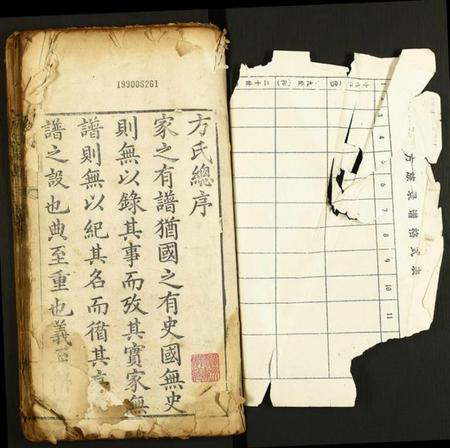 199006261
方氏總序
家之有譜猶國之有史國無史
則無以錄其事而攷其實家無
譜則無以紀其名而循其
譜之設也典至重也義至
方族录谱格式表
1
3
4
5
6
7
8
9
10
11